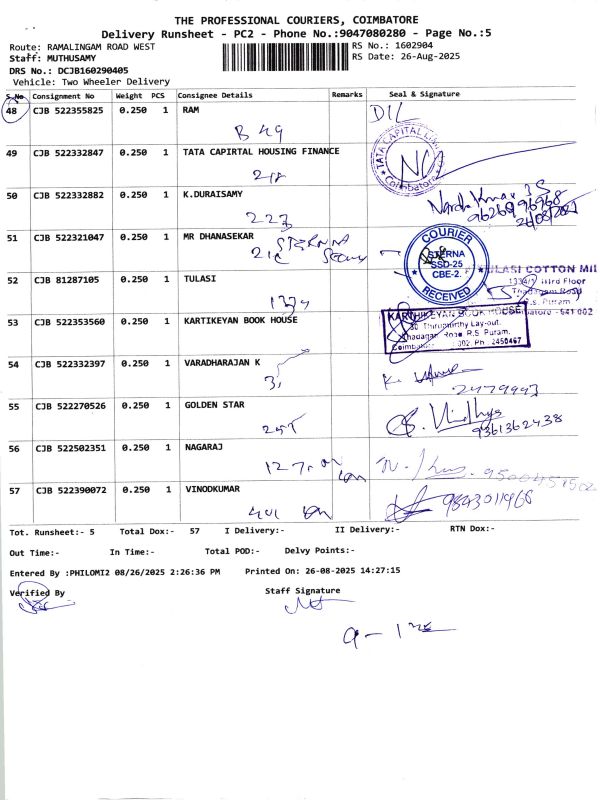 THE PROFESSIONAL COURIERS, COIMBATORE
Delivery Runsheet - PC2 - Phone No.:9047080280 - Page No.:5
Route: RAMALINGAM ROAD WEST
RS No.: 1602904
Staff: MUTHUSAMY
RS Date: 26-Aug-2025
DRS No.: DCJB160290405
Vehicle: Two Wheeler Delivery
S.No Consignment No Weight PCS Consignee Details Remarks Seal & Signature
48 CJB 522355825 0.250 1 RAM
B 49
49 CJB 522332847 0.250 1 TATA CAPIRTAL HOUSING FINANCE
TATA CAPITAL
Coimbatore
50 CJB 522332882 0.250 1 K.DURAISAMY
223
51 CJB 522321047 0.250 1 MR DHANASEKAR
COURIER
STERNA
SSD-25
CBE-2.
RECEIVED
52 CJB 81287105 0.250 1 TULASI
TULASI COTTON MIL
Third Floor
Thadagam Road
R.S. Puram
Coimbatore - 641 002
53 CJB 522353560 0.250 1 KARTIKEYAN BOOK HOUSE
KARTHIKEYAN BOOK HOUSE
Lay-out.
Road R.S. Puram.
Ph : 2450467
54 CJB 522332397 0.250 1 VARADHARAJAN K
2479993
55 CJB 522270526 0.250 1 GOLDEN STAR
9361362438
56 CJB 522502351 0.250 1 NAGARAJ
57 CJB 522390072 0.250 1 VINODKUMAR
401
9843011968
Tot. Runsheet:- 5 Total Dox:- 57 I Delivery:- II Delivery:- RTN Dox:-
Out Time:- In Time:- Total POD:- Delvy Points:-
Entered By :PHILOMI2 08/26/2025 2:26:36 PM Printed On: 26-08-2025 14:27:15
Verified By Staff Signature